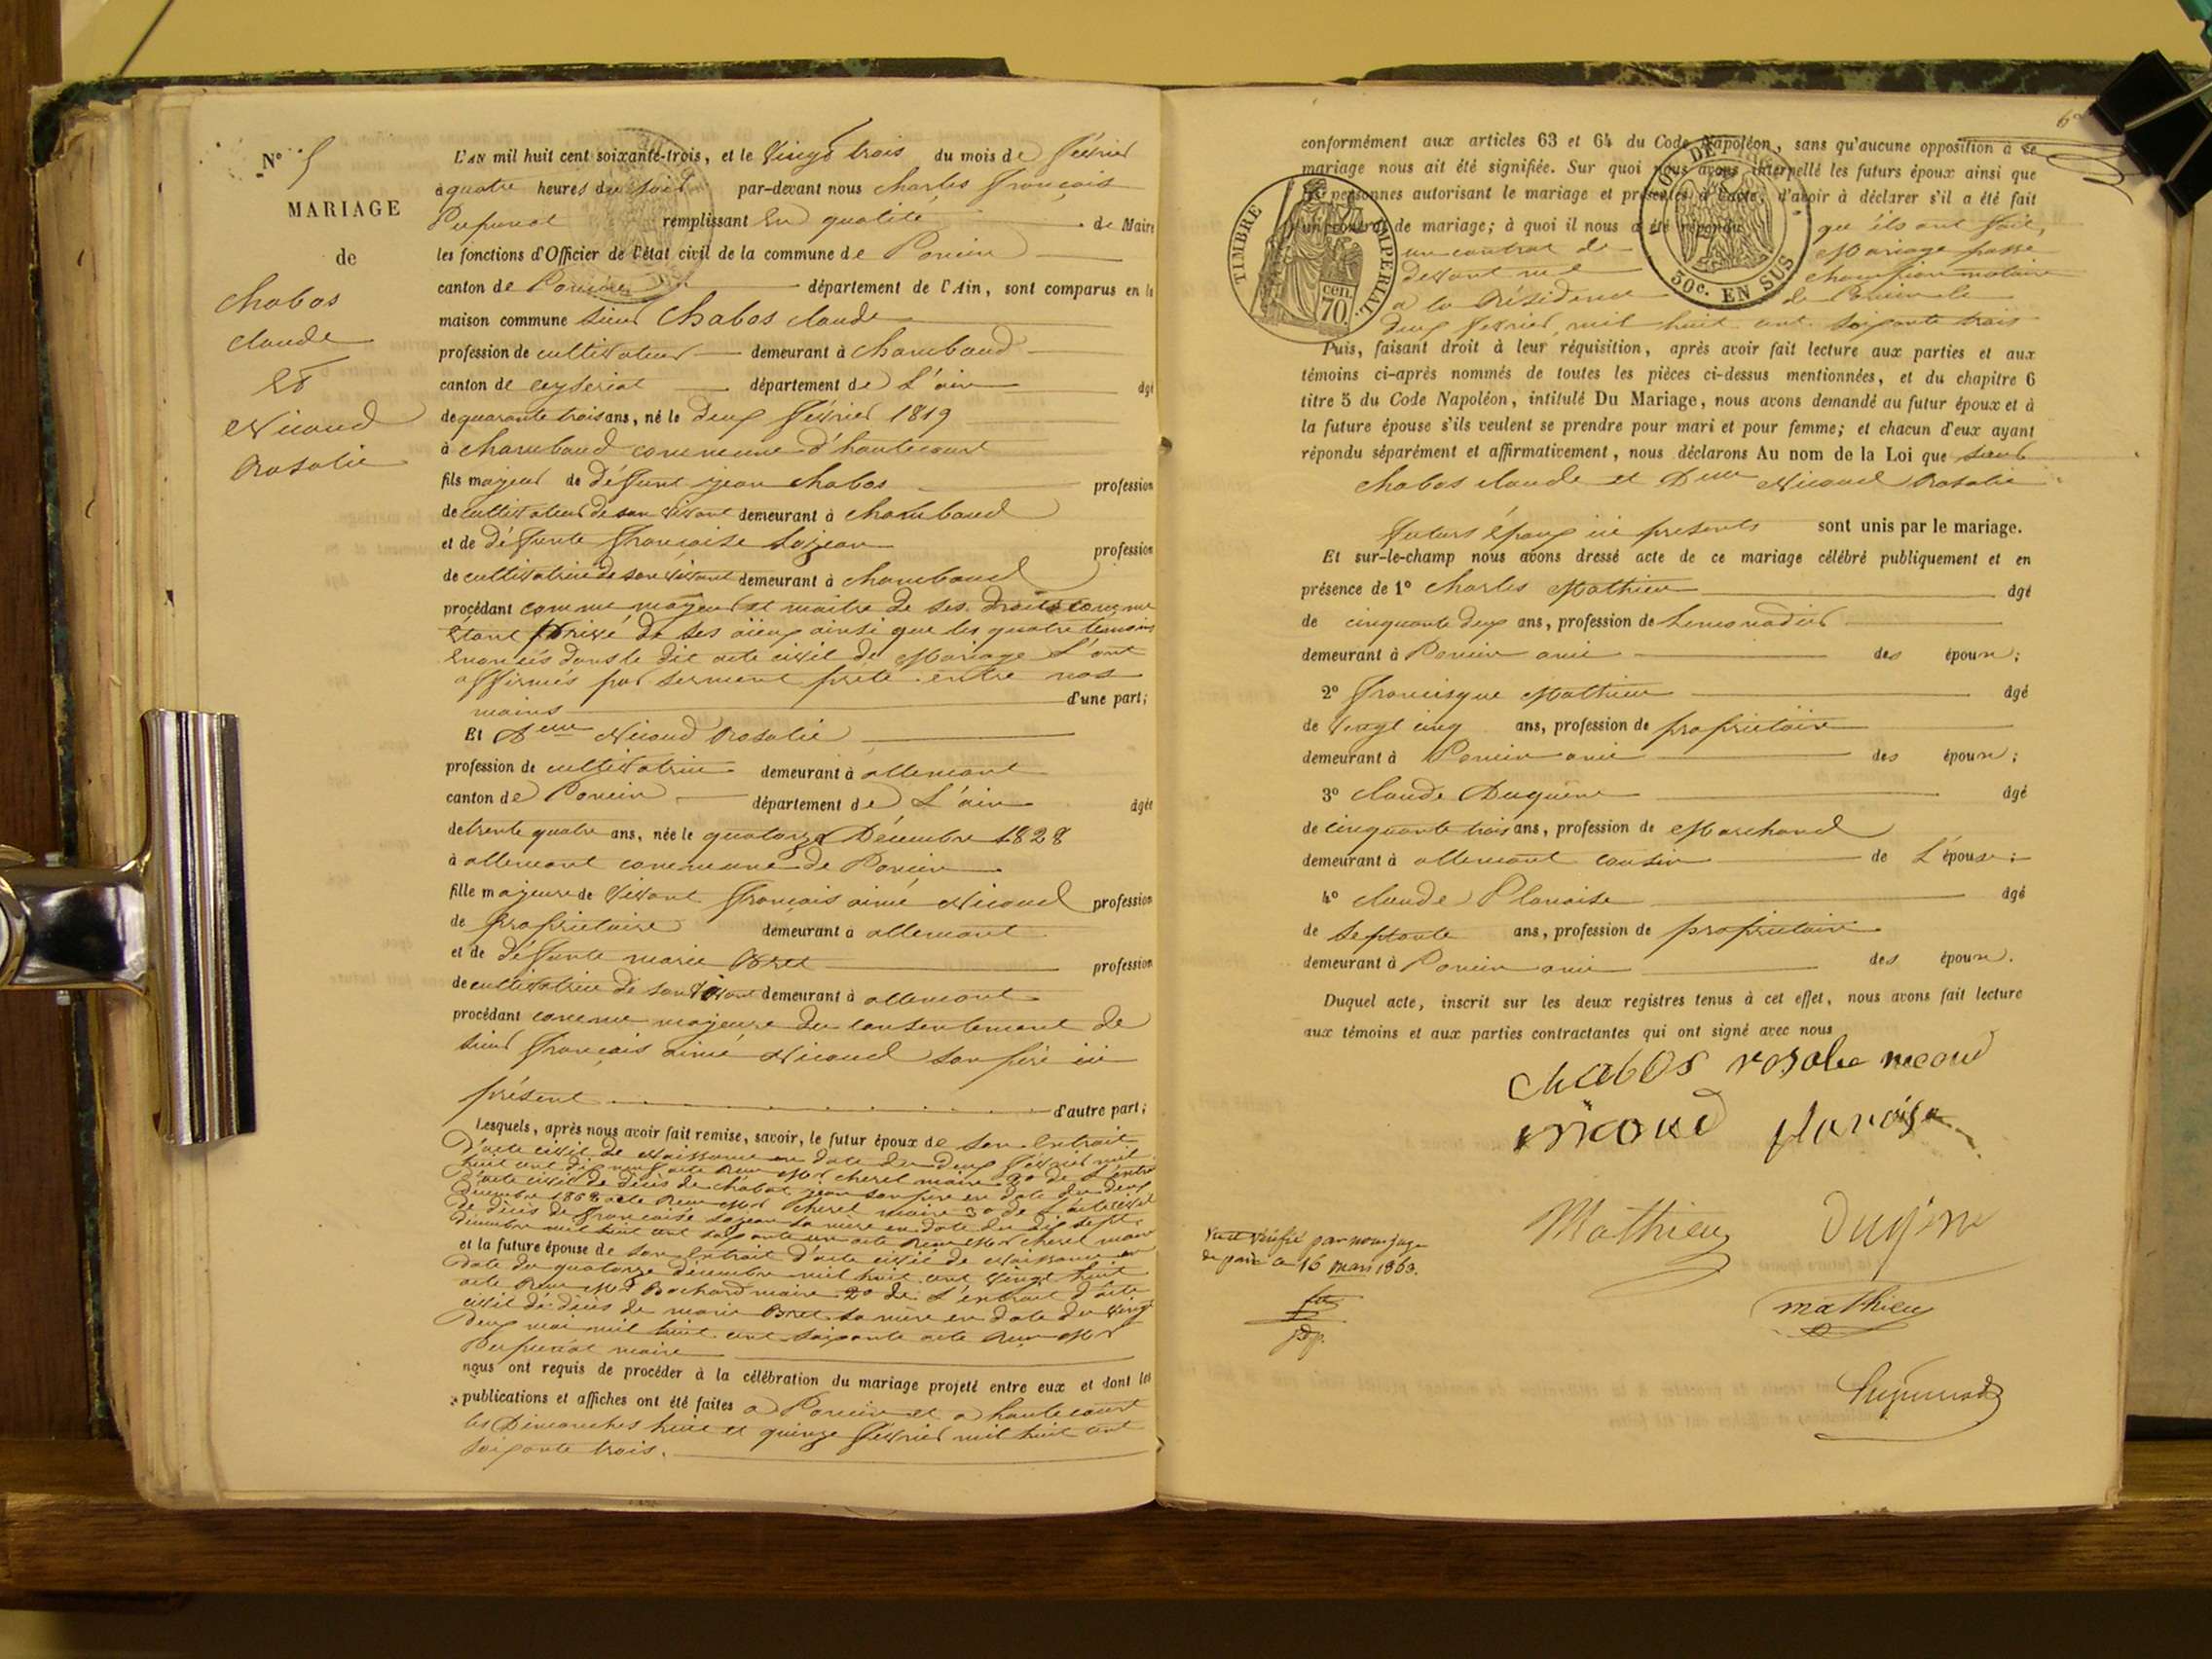 N° 5
MARIAGE
de
Chabos
claude
Et
Nicoud
Rosalie
L'AN mil huit cent soixante-trois, et le Vingt trois du mois de février
à quatre heures du soir par-devant nous Charles françois
remplissant En qualité de Maire
les fonctions d'Officier de l'état civil de la commune de Poncin
canton de Poncin département de l'Ain, sont comparus en la
maison commune Sieur Chabos claude
profession de cultivateur demeurant à Chambaud
canton de ceyseriat département de L'ain âgé
de quarante trois ans, né le deux février 1819
à Chambaud commune d'hautecourt
fils majeur de défunt jean Chabos profession
de cultivateur de son vivant demeurant à Chambaud
et de défunte françoise profession
de cultivatrice de son vivant demeurant à Chambaud
procédant comme majeur et maitre de ses droits comme
étant privé de ses aïeux ainsi que les quatre temoins
énoncés dans le dit acte civil de Mariage L'ont
affirmés par serment prêté entre nos
mains d'une part;
Et Delle Nicoud Rosalie
profession de cultivatrice demeurant à allement
canton de Poncin département de L'ain âgée
de trente quatre ans, née le quatorze Décembre 1828
à allement commune de Poncin
fille majeure de vivant françois aimé Nicoud profession
de propriétaire demeurant à allement
et de défunte marie Bret profession
de cultivatrice de son vivant demeurant à allement
procédant comme majeure du consentement de
sieur françois aimé Nicoud son père ici
présent d'autre part;
Lesquels, après nous avoir fait remise, savoir, le futur époux de son Extrait
d'acte civil de Naissance en date du deux février mil
huit cent dix neuf acte Reçu Mr cherel maire 2° de L'extrait
d'acte civil de décès de chabos jean son père en date du deux
Décembre acte Reçu Mr Cherel maire 3° de L'acte civil
de décès de françoise sa mère en date du dix sept
décembre mil huit cent soixante un acte Reçu Mr cherel maire
et la future épouse de son Extrait d'acte civil de Naissance en
date du quatorze décembre mil huit cent vingt huit
acte Reçu Mr Bochard maire 2° de L'extrait d'acte
civil de décès de marie Bret sa mère en date du vingt
deux mai mil huit cent soixante acte Reçu Mr
maire
nous ont requis de procéder à la célébration du mariage projeté entre eux et dont les
publications et affiches ont été faites à Poncin et à hautecourt
les Dimanches huit et quinze février mil huit cent
soixante trois.
conformément aux articles 63 et 64 du Code Napoléon, sans qu'aucune opposition à ce
mariage nous ait été signifiée. Sur quoi nous avons interpellé les futurs époux ainsi que
les personnes autorisant le mariage et présentes à l'acte, d'avoir à déclarer s'il a été fait
un contrat de mariage; à quoi il nous a été répondu qu'ils ont fait,
un contrat de Mariage passé
devant me champion notaire
à la Résidence de Poncin le
deux février mil huit cent soixante trois
TIMBRE IMPERIAL
70. cen.
30c. EN SUS
Puis, faisant droit à leur réquisition, après avoir fait lecture aux parties et aux
témoins ci-après nommés de toutes les pièces ci-dessus mentionnées, et du chapitre 6
titre 5 du Code Napoléon, intitulé Du Mariage, nous avons demandé au futur époux et à
la future épouse s'ils veulent se prendre pour mari et pour femme; et chacun d'eux ayant
répondu séparément et affirmativement, nous déclarons Au nom de la Loi que sieur
chabos claude et Delle Nicoud Rosalie
futurs époux ici présents sont unis par le mariage.
Et sur-le-champ nous avons dressé acte de ce mariage célébré publiquement et en
présence de 1° Charles Mathieu âgé
de cinquante deux ans, profession de Limonadier
demeurant à Poncin ami des époux;
2° francisque Mathieu âgé
de vingt cinq ans, profession de propriétaire
demeurant à Poncin ami des époux;
3° claude Dugêne âgé
de cinquante trois ans, profession de Marchand
demeurant à allement cousin de L'épouse;
4° claude Planaise âgé
de septante ans, profession de propriétaire
demeurant à Poncin ami des époux.
Duquel acte, inscrit sur les deux registres tenus à cet effet, nous avons fait lecture
aux témoins et aux parties contractantes qui ont signé avec nous
chabos rosalie nicoud
nicoud planaise
Mathieu Dugène
mathieu
Vu et vérifié par nous juge
de paix ce 16 mars 1863.